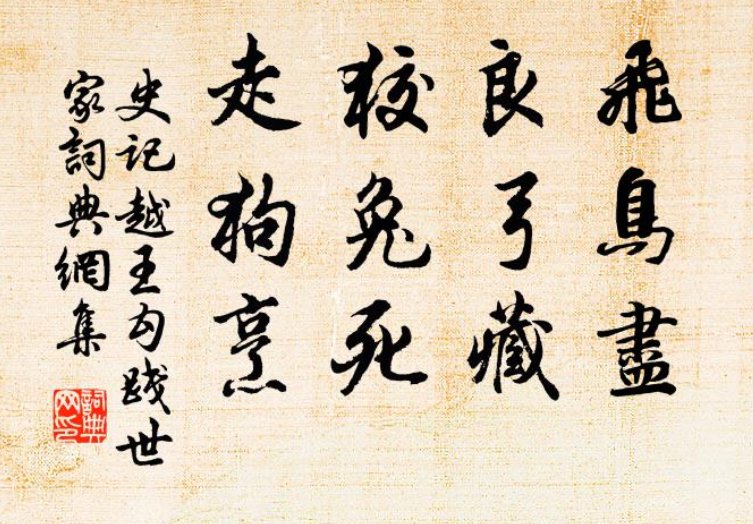 飛鳥盡
良弓藏
狡兔死
走狗烹
史記越王勾踐世
家詞典網集
詞典
网印